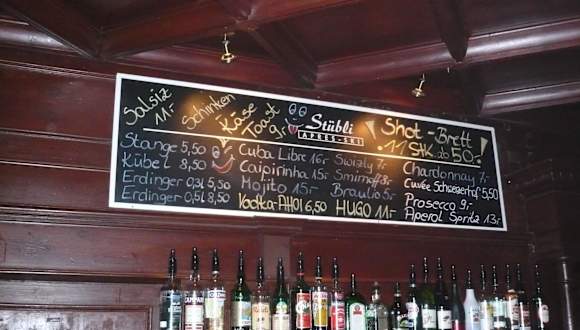 Salsiz
11.-
Schinken
Käse
Toast
9.-
Stübli
APRÈS-SKI
Shot-Brett
11 Stk. ab 50.-
Stange 5,50
Kübel 8,50
Erdinger 0,3l 5,50
Erdinger 0,5l 8,50
Cuba Libre 16.-
Caipirinha 15.-
Mojito 15.-
Vodka-AHOI 6,50
Swizly 7.-
Smirnoff 8.-
Braulio 5.-
HUGO 11.-
Chardonnay 7.-
Cuvée Schweizerhof 5,50
Prosecco 9.-
Aperol Spritz 13.-